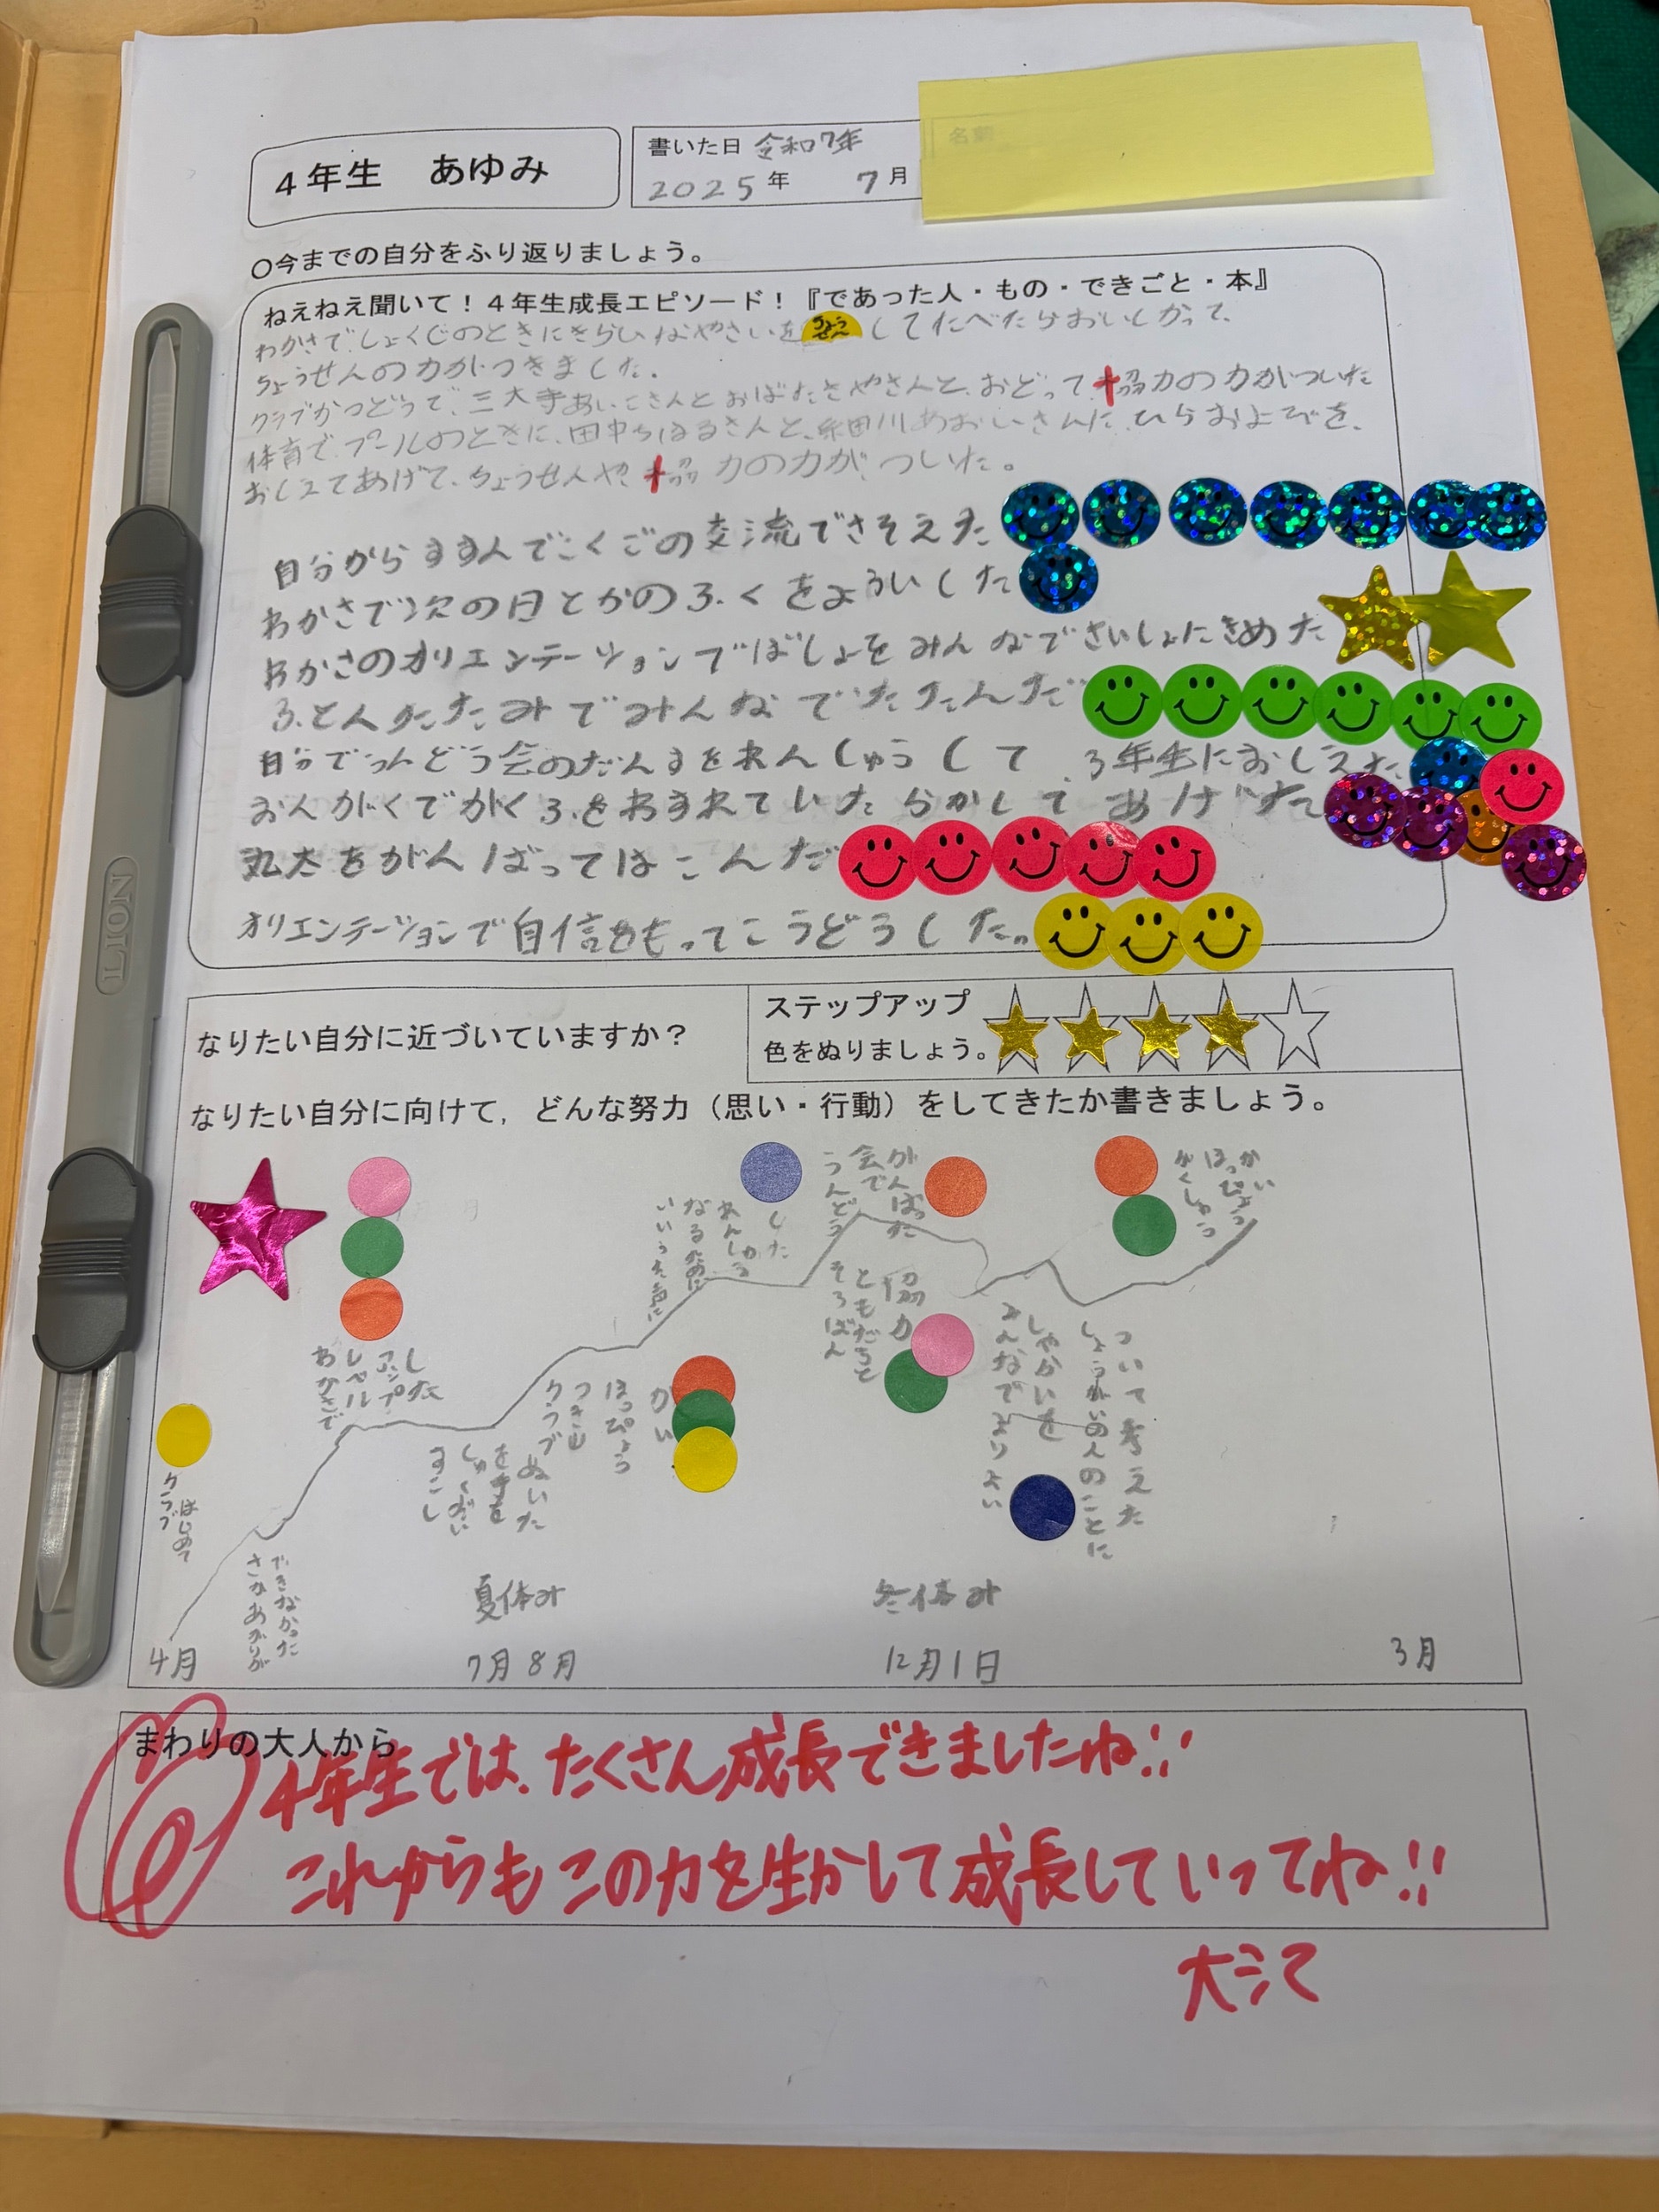 4年生 あゆみ
書いた日 令和7年
2025年 7月
○今までの自分をふり返りましょう。
ねえねえ聞いて！４年生成長エピソード！『であった人・もの・できごと・本』
わかさで、しょくじのときにきらいなやさいをちょうせんしてたべたらおいしかって、
ちょうせんの力がつきました。
クラブかつどうで、三大寺あいこさんとおばたさやさんと、おどって、協力の力がついた
体育で、プールのときに、田中ちはるさんと、糸田川あおいさんに、ひらおよぎを、
おしえてあげて、ちょうせんや、協力の力が、ついた。
自分からすすんでこくごの交流でさそえた
わかさで次の日とかのふくをよういした
わかさのオリエンテーションでばしょをみんなでさいしょにきめた
ふとんたたみでみんなでたたんだ
自分でうんどう会のだんすをれんしゅうして、3年生におしえた
おんがくでがくふをわすれていたらかしてあげた
丸太をがんばってはこんだ
オリエンテーションで自信をもってこうどうした。
LION
なりたい自分に近づいていますか？
ステップアップ
色をぬりましょう。
なりたい自分に向けて，どんな努力（思い・行動）をしてきたか書きましょう。
はじめて
クラブ
できなかった
さかあがりが
わかさで
レベル
アップ
した
すこし
しゅくだい
を手を
ぬいた
クラブ
つきむ
はっぴょう
かい
いいうた声に
なるために
れんしゅう
した
うんどう
会で
がんばった
そろばん
ともだちと
協力
みんなでよりよい
しゃかいを
しょうがいの人のことに
ついて考えた
がくしゅう
はっぴょう
かい
夏休み
冬休み
4月
7月8月
12月1日
3月
まわりの大人から
4年生では、たくさん成長できましたね!!
これからもこの力を生かして成長していってね!!